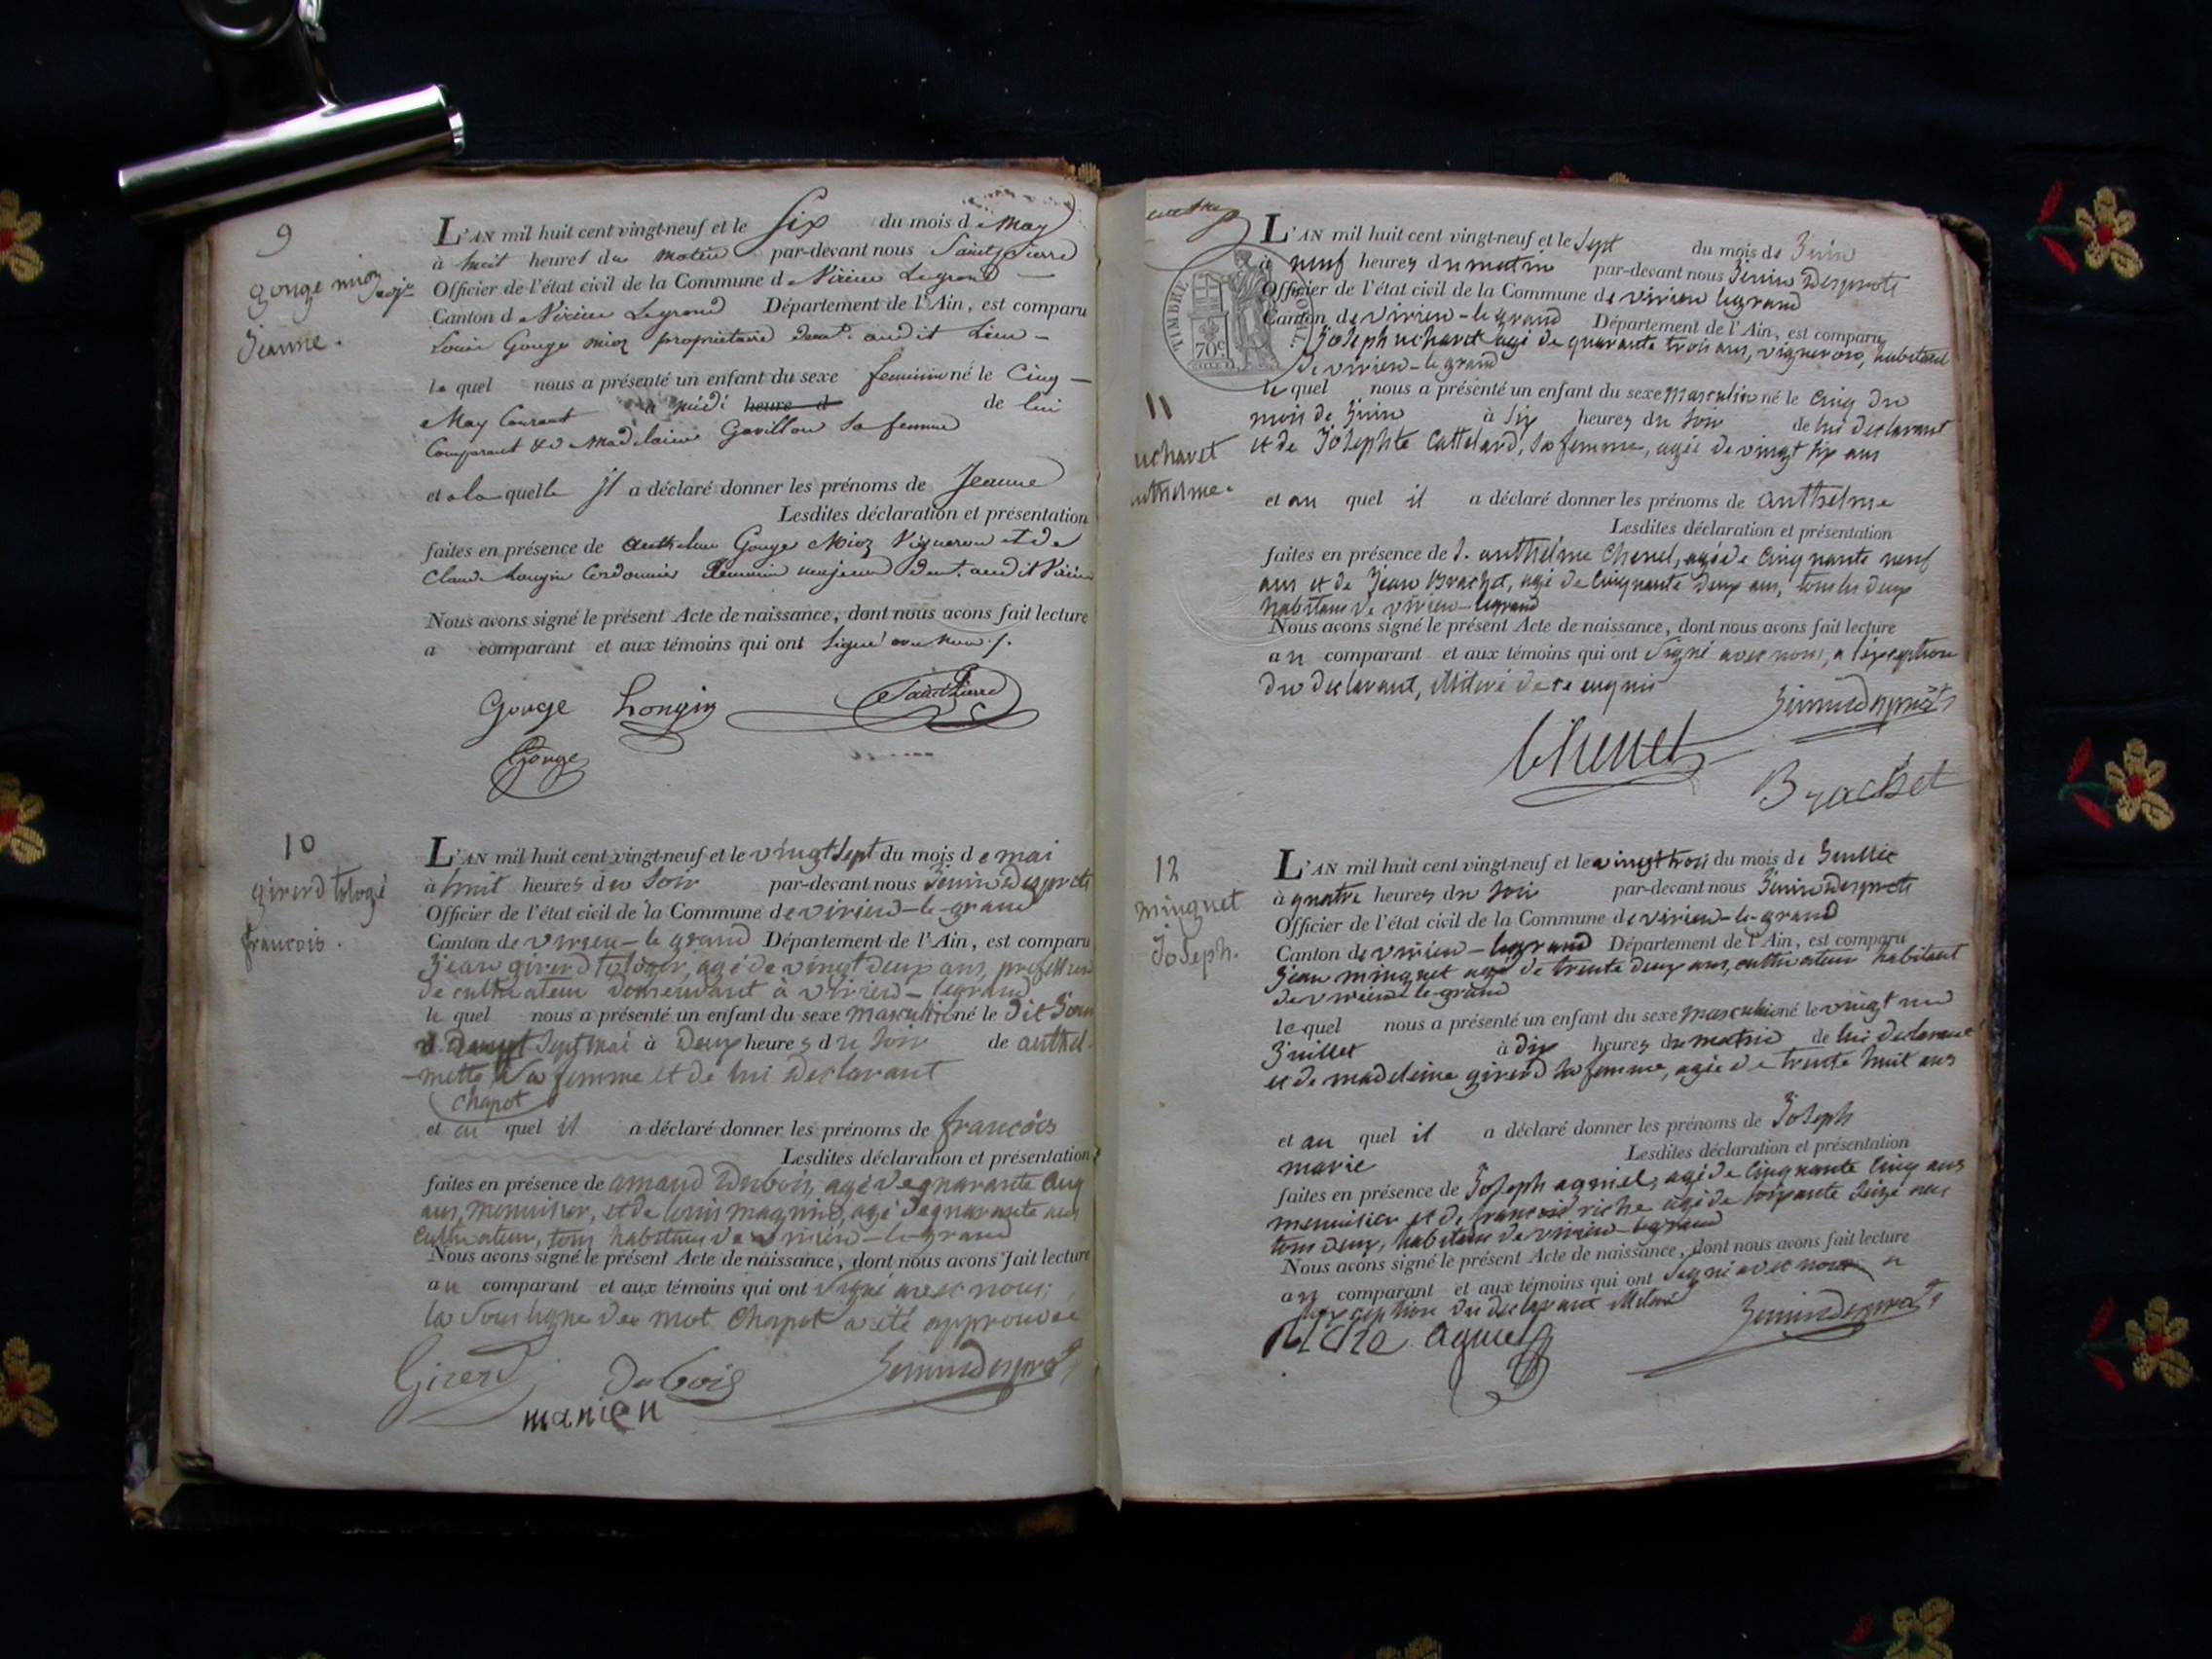 9
gouge mioz
Jeanne.
L'AN mil huit cent vingt-neuf et le Six du mois de May
à huit heures du matin par-devant nous Saint pierre
Officier de l'état civil de la Commune de Virieu Legrand
Canton de Virieu Legrand Département de l'Ain, est comparu
Louis Gouge mioz propriétaire demt. audit Lieu
le quel nous a présenté un enfant du sexe feminin né le Cinq
May Courant à midi heure d de lui
Comparant et de Madelaine Gavillon sa femme
et a la quelle il a déclaré donner les prénoms de Jeanne
Lesdites déclaration et présentation
faites en présence de anthelme Gouge Mioz Vigneron et de
Claude Longin Cordonnier majeurs demt. audit Virieu
Nous avons signé le présent Acte de naissance, dont nous avons fait lecture
a comparant et aux témoins qui ont signé avec nous /.
Gouge Longin Saint Pierre
Gouge
10
girerd tologé
francois.
L'AN mil huit cent vingt-neuf et le vingt sept du mois de mai
à huit heures du soir par-devant nous Jenin Desprots
Officier de l'état civil de la Commune de virieu-le-grand
Canton de virieu-le grand Département de l'Ain, est comparu
Jean girerd tologer, agé de vingt deux ans, profession
de cultivateur demeurant à virieu-legrand
le quel nous a présenté un enfant du sexe masculin né le dit Jour
vingt Sept mai à Deux heures du soir de anthel-
-mette sa femme et de lui declarant
Chapot
et au quel il a déclaré donner les prénoms de francois
Lesdites déclaration et présentation
faites en présence de amand Dubois, agé de quarante cinq
ans, menuisier, et de louis magnin, agé de quarante ans
Cultivateur, tous habitans de virieu-le-grand
Nous avons signé le présent Acte de naissance, dont nous avons fait lecture
au comparant et aux témoins qui ont signé avec nous;
la sous ligne du mot Chapot a été approuvée
Girerd Dubois Jenindesprots
manien
TIMBRE ROYAL
70c
L'AN mil huit cent vingt-neuf et le Sept du mois de Juin
à neuf heures du matin par-devant nous Jenin Desprots
Officier de l'état civil de la Commune de virieu legrand
Canton de virieu-le-grand Département de l'Ain, est comparu
Joseph uchavet agé de quarante trois ans, vigneron, habitant
de virieu-le grand
11
uchavet
anthelme.
le quel nous a présenté un enfant du sexe masculin né le cinq du
mois de Juin à six heures du soir de lui declarant
et de Josephte Cattelard, sa femme, agée de vingt six ans
et au quel il a déclaré donner les prénoms de anthelme
Lesdites déclaration et présentation
faites en présence de J. anthelme Chenel, agé de cinquante neuf
ans et de Jean Brachet, agé de cinquante Deux ans, tous les deux
habitans de virieu-legrand
Nous avons signé le présent Acte de naissance, dont nous avons fait lecture
au comparant et aux témoins qui ont signé avec nous, a l'exception
du declarant, illitéré de ce enquis
Jenindesprots
Chenel
Brachet
12
minguet
Joseph.
L'AN mil huit cent vingt-neuf et le vingt trois du mois de Juillet
à quatre heures du soir par-devant nous Jenin Desprots
Officier de l'état civil de la Commune de virieu-le-grand
Canton de virieu-legrand Département de l'Ain, est comparu
Jean minguet agé de trente deux ans, cultivateur habitant
de virieu le-grand
le quel nous a présenté un enfant du sexe masculin né le vingt un
Juillet à dix heures du matin de lui declarant
et de madeleine girerd sa femme, agée de trente huit ans
et au quel il a déclaré donner les prénoms de Joseph
marie
Lesdites déclaration et présentation
faites en présence de Joseph agniel, agé de cinquante cinq ans
menuisier et de francois riche agé de soixante seize ans
tous deux, habitans de virieu-legrand
Nous avons signé le présent Acte de naissance, dont nous avons fait lecture
au comparant et aux témoins qui ont signé avec nous a
l'exception du declarant illitéré
agniel Jenindesprots